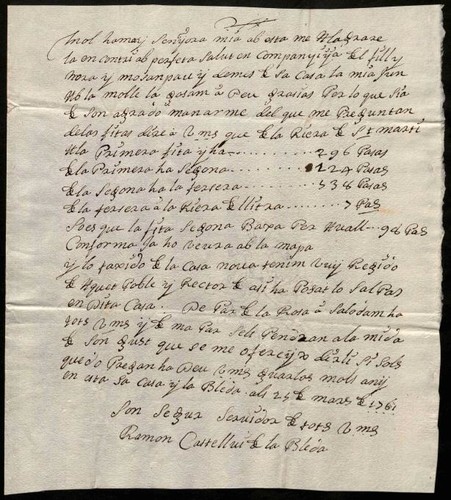 Mol s.ª mare y senyora mia ab esta me Alagrare
la encontria ab perfeta salut en Companyiya de fill y
nora y mosenpau y demes de sa Casa la mia jun
ab la molle la gosam a Deu gracias Per lo que sia
de son agrado manarme del que me Preguntan
de las fitas dire a Vms que de la Riera de St marti
A la Primera fita y ha 296 Pasas
de la Primera ha segona 124 Pasas
de la segona ha la tersera 338 Pasas
de la tersera a la Riera de llitra 7 Pas
Pues que la fita segona Baxa Per Avall 96 Pas
Conforma ja ho veura ab la mapa
y lo taxido de la Casa nova tenim vuy Regido
de Aquet Poble y Rector de asi ha Posat lo salpas
en Dita Casa. De Par de la Rosa a saludam ha
tots Vms y de ma Par seli Pendran a la mida
de son Gust que se me ofereix dirli si sols
quedo Pregan ho Deu Vms guarlos mols anys
en esta sa Casa y la Bleda als 25 de mars de 1761
Son segur servidor de tots Vms
Ramon Castellvi de la Bleda